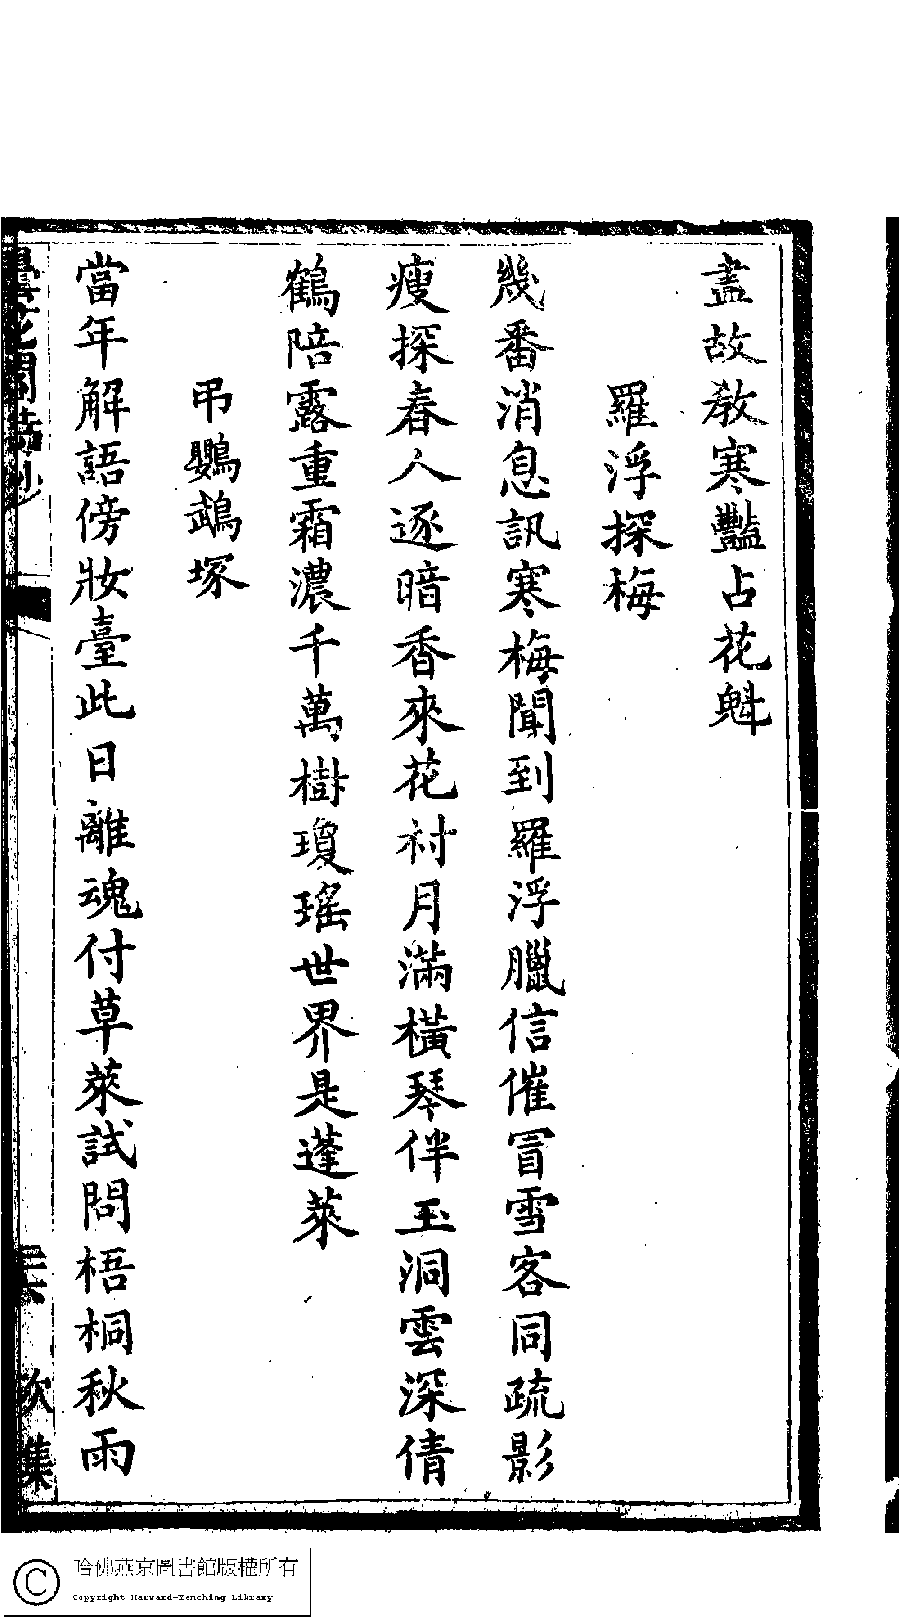 盡故教寒豔占花魁
羅浮探梅
幾番消息訊寒梅聞到羅浮臘信催冒雪客同疏影
瘦探春人逐暗香來花村月滿橫琴伴玉洞雲深倩
鶴陪露重霜濃千萬樹瓊瑤世界是蓬萊
弔鸚鵡塚
當年解語傍妝臺此日離魂付草萊試問梧桐秋雨
花閣詩鈔
集
哈佛燕京圖書館版權所有
Copyright Harvard-Yenching Library